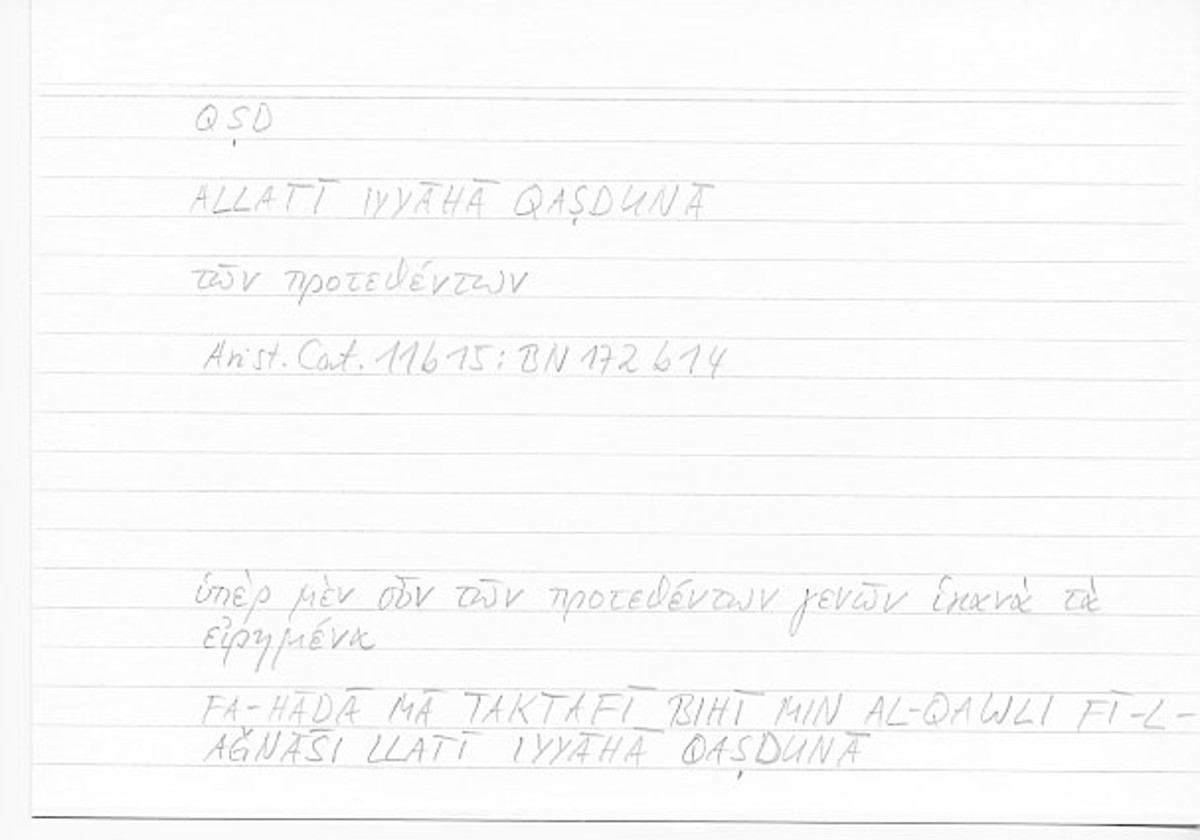 QṢD
ALLATĪ IYYĀHĀ QAṢDUNĀ
τῶν προτεθέντων
Arist. Cat. 11b15: BN 172b14
ὑπὲρ μὲν οὖν τῶν προτεθέντων γενῶν ἱκανὰ τὰ
εἰρημένα
FA-HĀDĀ MĀ TAKTAFĪ BIHĪ MIN AL-QAWLI FĪ-L-
AǦNĀSI LLATĪ IYYĀHĀ QAṢDUNĀ